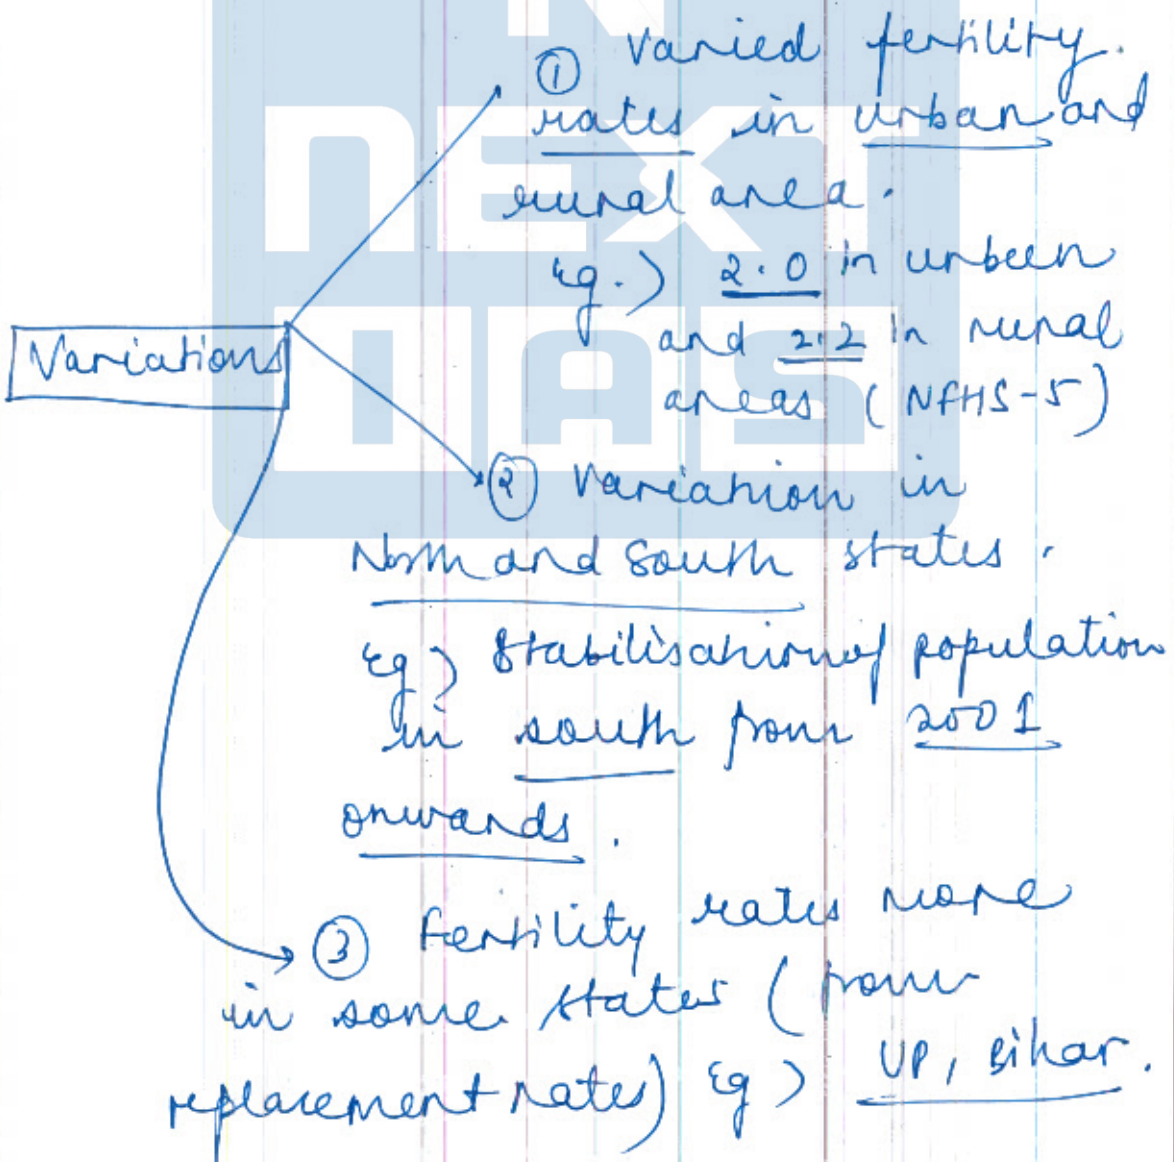 ① Varied fertility.
rates in urban and
rural area.
Eg.) 2.0 in urbeen
and 2.2 in rural
areas (NFHS-5)
Variations
② Variation in
North and South states.
Eg) Stabilisation of population
in south from 2001
onwards.
③ Fertility rates more
in some states (from
replacement rates) Eg) UP, Bihar.
N
NEXT
IAS